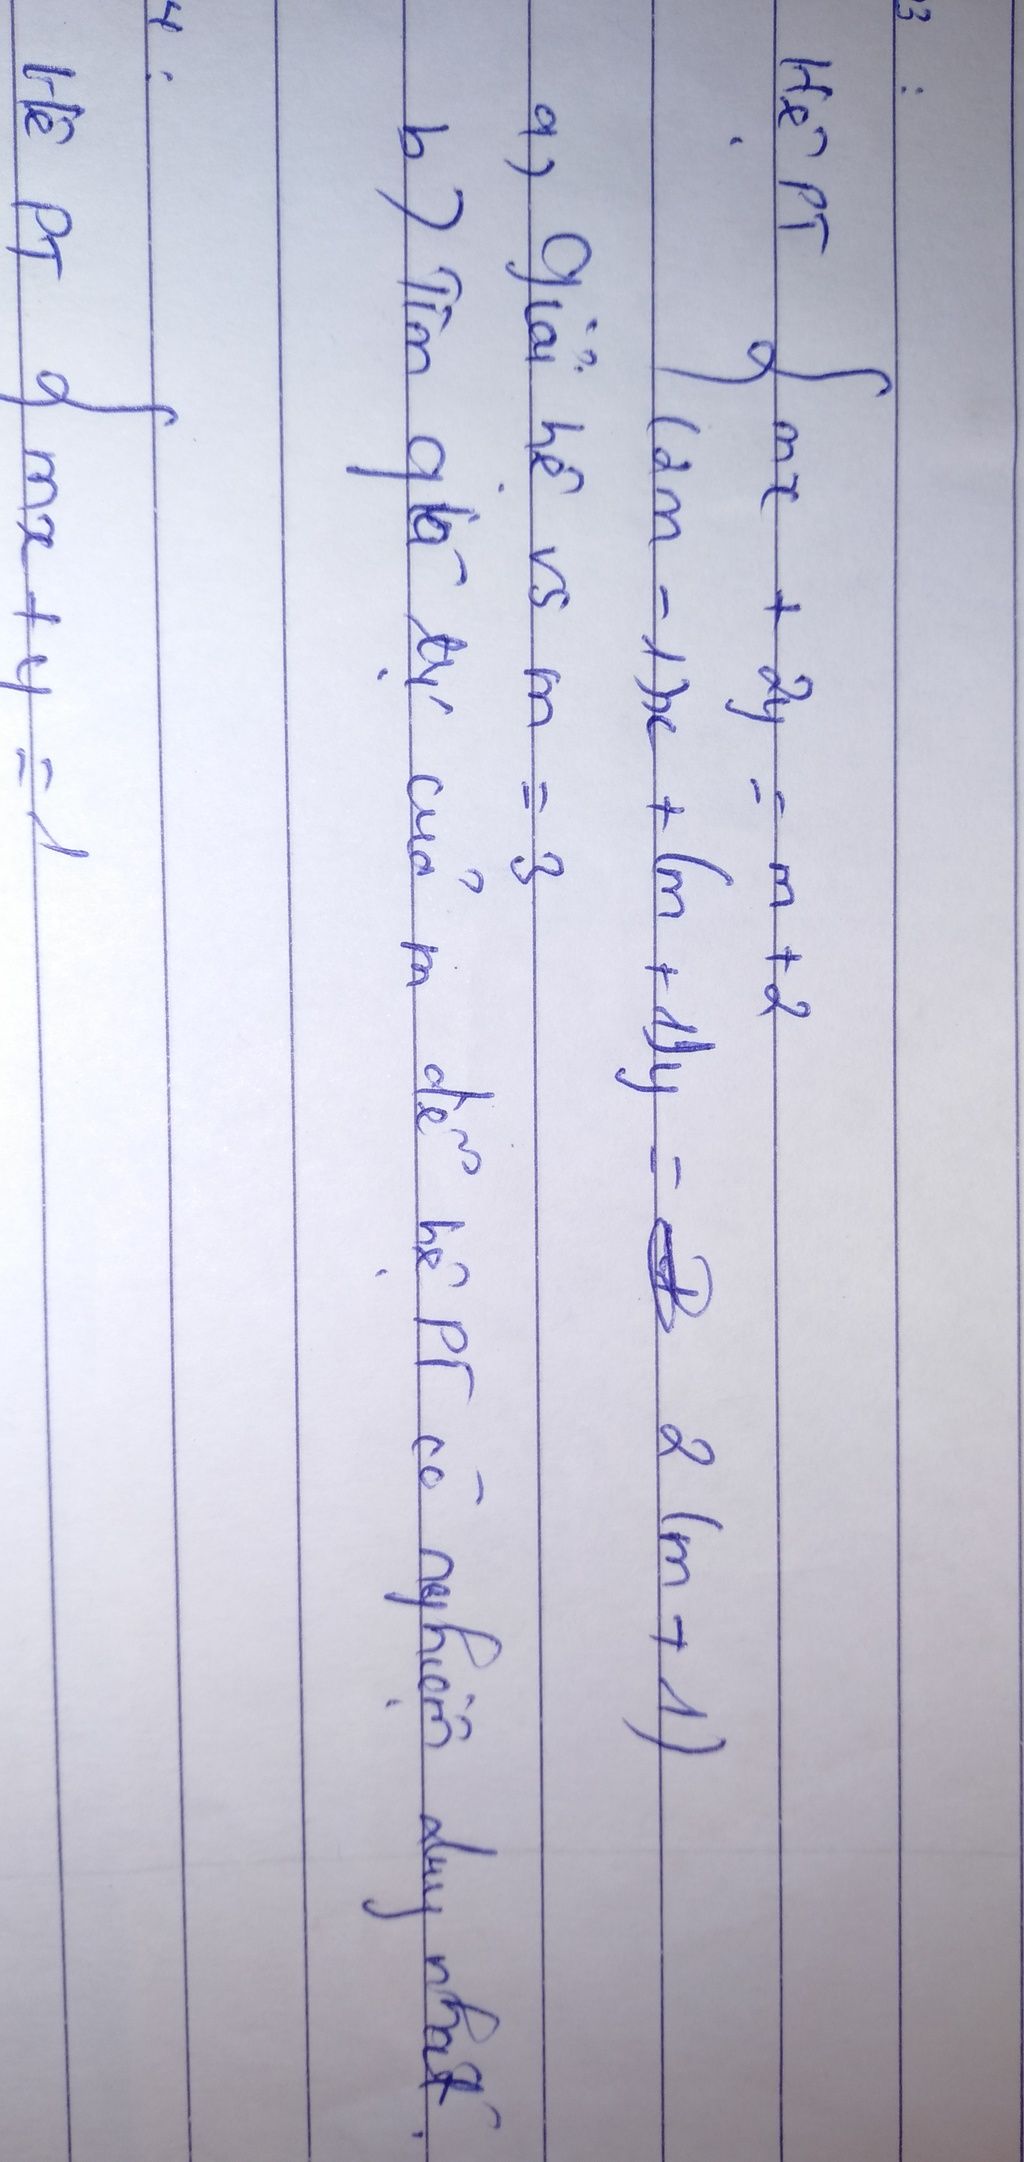 3:
Hệ PT { mx + 2y = m + 2
(2m - 1)x + (m + 1)y = 2 (m + 1)
a) Giải hệ vs m = 3
b) Tìm giá trị của m để hệ PT có nghiệm duy nhất.
4:
Hê PT { mx + y = 1